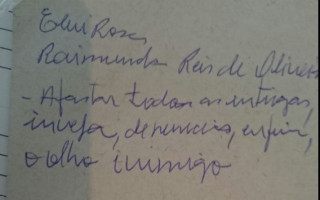 Elui Rosa
Raimunda Reis de Oliveira
- Afastar todas as intrigas,
inveja, denuncias,
o olho inimigo